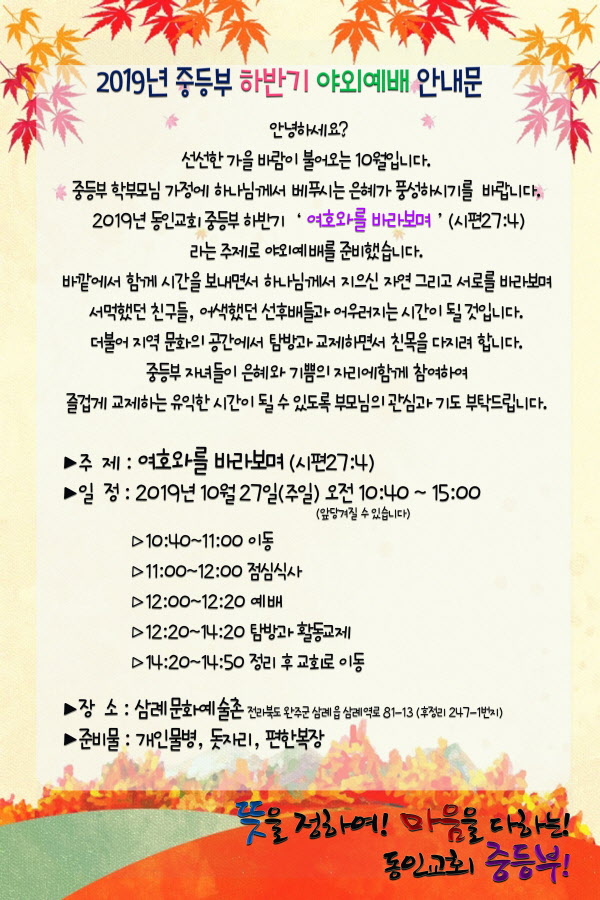 2019년 중등부 하반기 야외예배 안내문
안녕하세요?
선선한 가을 바람이 불어오는 10월입니다.
중등부 학부모님 가정에 하나님께서 베푸시는 은혜가 풍성하시기를 바랍니다.
2019년 동인교회 중등부 하반기 ‘ 여호와를 바라보며 ’ (시편27:4)
라는 주제로 야외예배를 준비했습니다.
바깥에서 함께 시간을 보내면서 하나님께서 지으신 자연 그리고 서로를 바라보며
서먹했던 친구들, 어색했던 선후배들과 어우러지는 시간이 될 것입니다.
더불어 지역 문화의 공간에서 탐방과 교제하면서 친목을 다지려 합니다.
중등부 자녀들이 은혜와 기쁨의 자리에함께 참여하여
즐겁게 교제하는 유익한 시간이 될 수 있도록 부모님의 관심과 기도 부탁드립니다.
▶주 제 : 여호와를 바라보며 (시편27:4)
▶일 정 : 2019년 10월 27일(주일) 오전 10:40 ~ 15:00
(앞당겨질 수 있습니다)
▷10:40~11:00 이동
▷11:00~12:00 점심식사
▷12:00~12:20 예배
▷12:20~14:20 탐방과 활동교제
▷14:20~14:50 정리 후 교회로 이동
▶장 소 : 삼례문화예술촌 전라북도 완주군 삼례읍 삼례역로 81-13 (후정리 247-1번지)
▶준비물 : 개인물병, 돗자리, 편한복장
뜻을 정하여! 마음을 다하는!
동인교회 중등부!